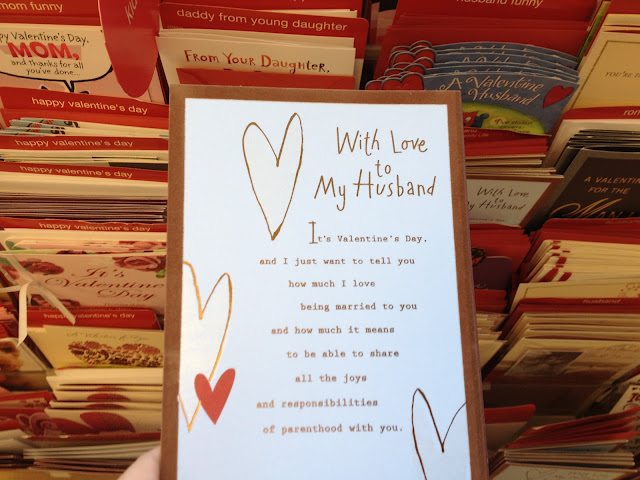 mom funny
daddy from young daughter
husband funny
Happy Valentine's Day,
MOM,
and thanks for all
you've done...
From Your Daughter,
A Valentine
Husband
happy valentine's day
happy valentine's day
happy valentine's day
happy valentine's day
It's
Valentine's
Day
happy valentine's day
With Love
to
My Husband
It's Valentine's Day,
and I just want to tell you
how much I love
being married to you
and how much it means
to be able to share
all the joys
and responsibilities
of parenthood with you.
With Love
to
My Husband
A VALENTINE
FOR THE
husband